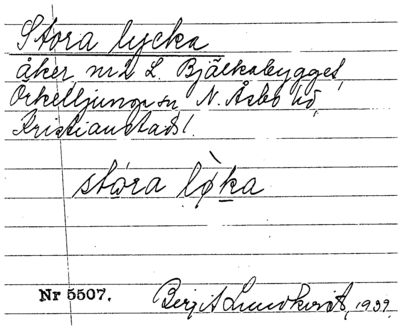 Stora lycka
åker nr 2 L. Bjälkabygget,
Örkelljunga sn, N. Åsbo hd,
Kristianstads l.
stora løka
Nr 5507.
Birgit Lundkvist, 1939.